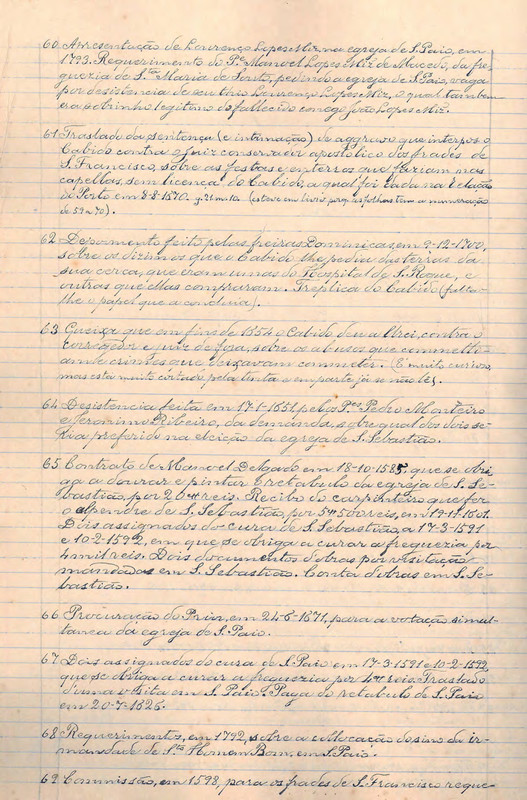 60 Apresentação de Lourenço Lopes Miz. na egreja de S. Paio, em
1793. Requerimento do Pe Manoel Lopes Miz de Macedo, da fre-
guezia de S.ta Maria de Souto, pedindo a egreja de S. Paio, vaga
por desistencia de seu thio Lourenço Lopes Miz, o qual tambem
é a sobrinho legitimo do fallecido conego João Lopes Miz.
61 Traslado da sentença (e intimação) de aggravo que interpos o
Cabido contra o juiz conservador apostolico dos frades de
S. Francisco, sobre as festas e enterros que faziam nas
capellas, sem licença do Cabido, a qual foi dada na Relação
do Porto em 8-8-1570. (esteve em livro, porq. as folhas tem a numeração
de 59 a 70).
62 Depoimento feito pelas freiras Dominicas, em 9-12-1700,
sobre os dizimos que o Cabido lhe pedia das terras da
sua cerca, que eram umas do Hospital de S. Roque, e
outras que ellas compraram. Treplica do Cabido (falta-
lhe o papel que a concluia).
63 Queixa que em fins de 1654 o Cabido deu a El rei, contra o
corregedor e juiz de fóra, sobre os abusos que commettiam
e crimes que deixavam commetter. (É muito curioso,
mas está muito cortado pela tinta e em parte já se não lê).
64 Desistencia feita em 17-1-1651, pelos Pes Pedro Monteiro
e Jeronimo Ribeiro, da demanda, sobre qual dos dois se-
ria preferido na eleição da egreja de S. Sebastião.
65 Contrato de Manoel Delgado em 18-10-1585, que se obri-
ga a dourar e pintar o retabulo da egreja de S. Se-
bastião, por 20 reis. Recibo do carpinteiro que fez
o alpendre de S. Sebastião, por 5 500 reis, em 19-17-1601.
Dois assignados do cura de S. Sebastião, a 17-3-1591
e 10-2-1592, em que se obriga a curar a freguezia por
4 mil reis. Dois documentos d'obras por visitação
mandadas em S. Sebastião. Conta d'obras em S. Se-
bastião.
66 Procuração do Prior, em 24-6-1671, para a votação simul-
tanea da egreja de S. Paio.
67 Dois assignados do cura de S. Paio em 17-3-1591 e 10-2-1592,
que se obriga a curar a freguezia por 4 reis. Traslado
d'uma visita em S. Paio. Paga do retabulo de S. Paio
em 20-7-1626.
68 Requerimentos, em 1792, sobre a collocação do sino da ir-
mandade de S.to Homem Bom, em S. Paio.
69 Commissão, em 1598, para os frades de S. Francisco reque-